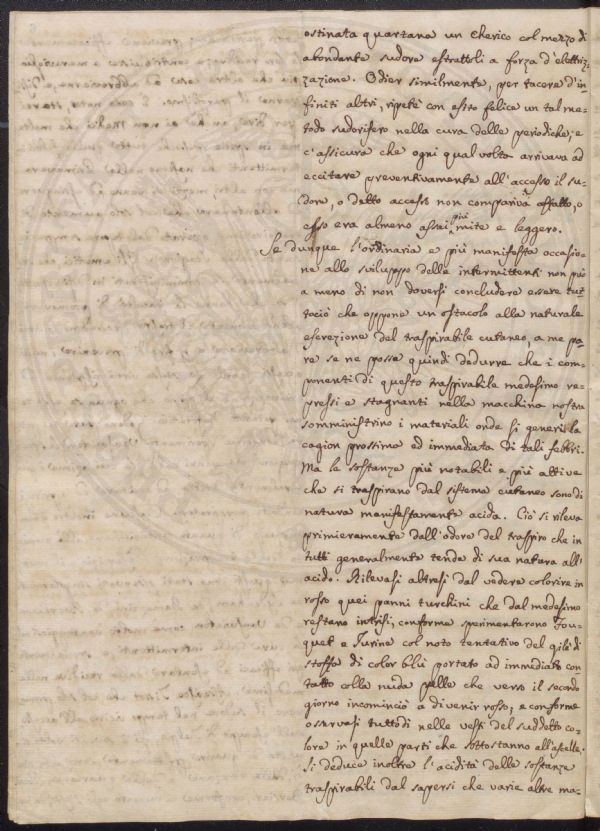 ostinata quartana un cherico col mezzo di
abondante sudore estrattoli a forza d'elettriz-
zazione. Odier similmente, per tacere d'in-
finiti altri, ripetè con esito felice un tal me-
todo sudorifero nella cura delle periodiche, e
c'assicura che ogni qual volta arrivava ad
eccitare preventivamente all'accesso il su-
dore, o detto accesso non compariva affatto, o
esso era almeno assai più mite e leggero.
Se dunque l'ordinaria e più manifesta occasio-
ne allo sviluppo delle intermittenti non può
a meno di non doversi concludere essere tut-
tociò che oppone un ostacolo alla naturale
escrezione del traspirabile cutaneo, a me pa-
re se ne possa quindi dedurre che i com-
ponenti di questo traspirabile medesimo re-
pressi e stagnanti nella macchina nostra
somministrino i materiali onde si generi la
cagion prossima ed immediata di tali febbri.
Ma le sostanze più notabili e più attive
che si traspirano dal sistema cutaneo sono di
natura manifestamente acida. Ciò si rileva
primieramente dall'odore del traspiro che in
tutti generalmente tende di sua natura all'
acido. Rilevasi altresì dal vedere colorire in
rosso quei panni turchini che dal medesimo
restano intrisi, conforme sperimentarono Fou-
quet e Jurine col noto tentativo del gilè di
stoffa di color blù portato ad immediato con-
tatto colla nuda pelle che verso il secondo
giorno incominciò a divenir rosso; e conforme
osservasi tuttodì nelle vesti del suddetto co-
lore in quelle parti che sottostanno all'ascelle.
Si deduce inoltre l'acidità delle sostanze
traspirabili dal sapersi che varie altre ma-